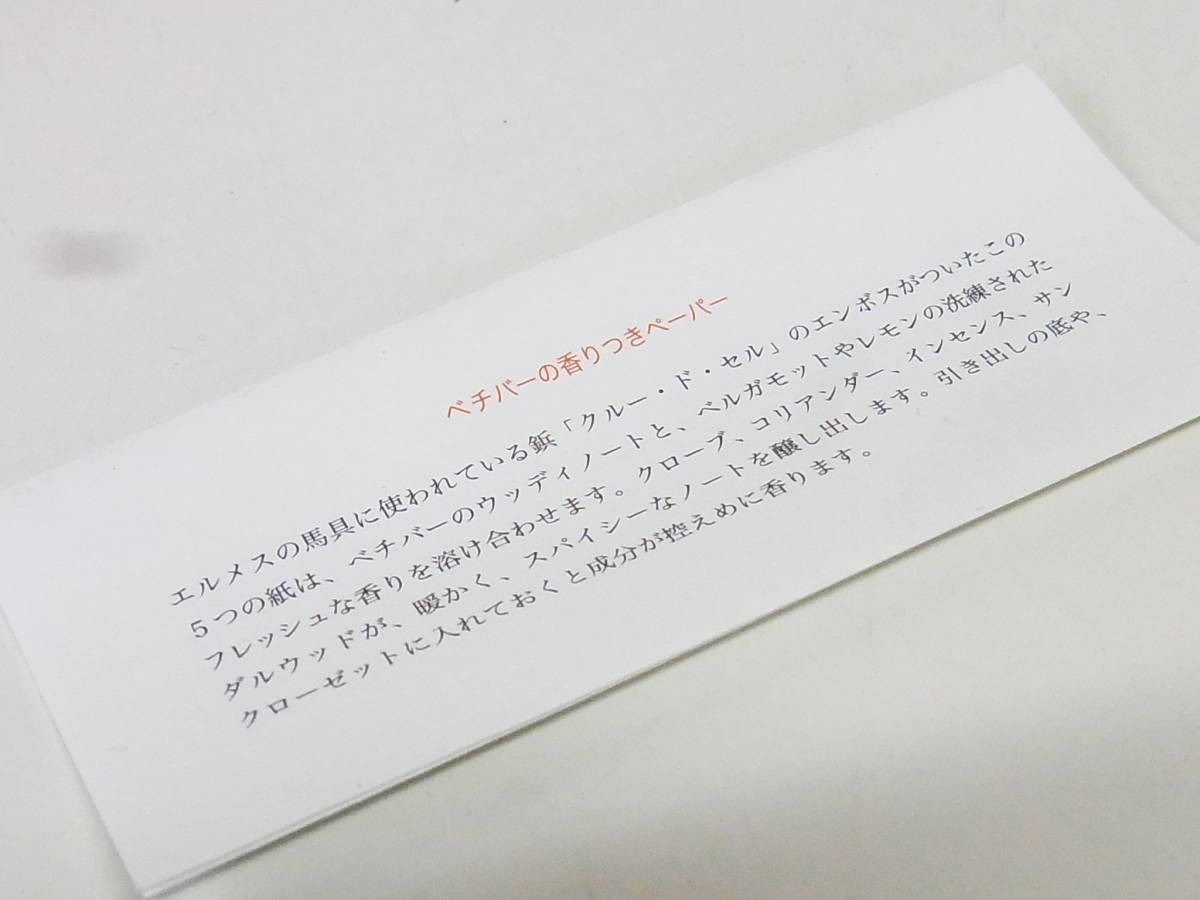 ベチバーの香りつきペーパー
エルメスの馬具に使われている鋲「クルー・ド・セル」のエンボスがついたこの
5つの紙は、ベチバーのウッディノートと、ベルガモットやレモンの洗練された
フレッシュな香りを溶け合わせます。クローブ、コリアンダー、インセンス、サン
ダルウッドが、暖かく、スパイシーなノートを醸し出します。引き出しの底や、
クローゼットに入れておくと成分が控えめに香ります。